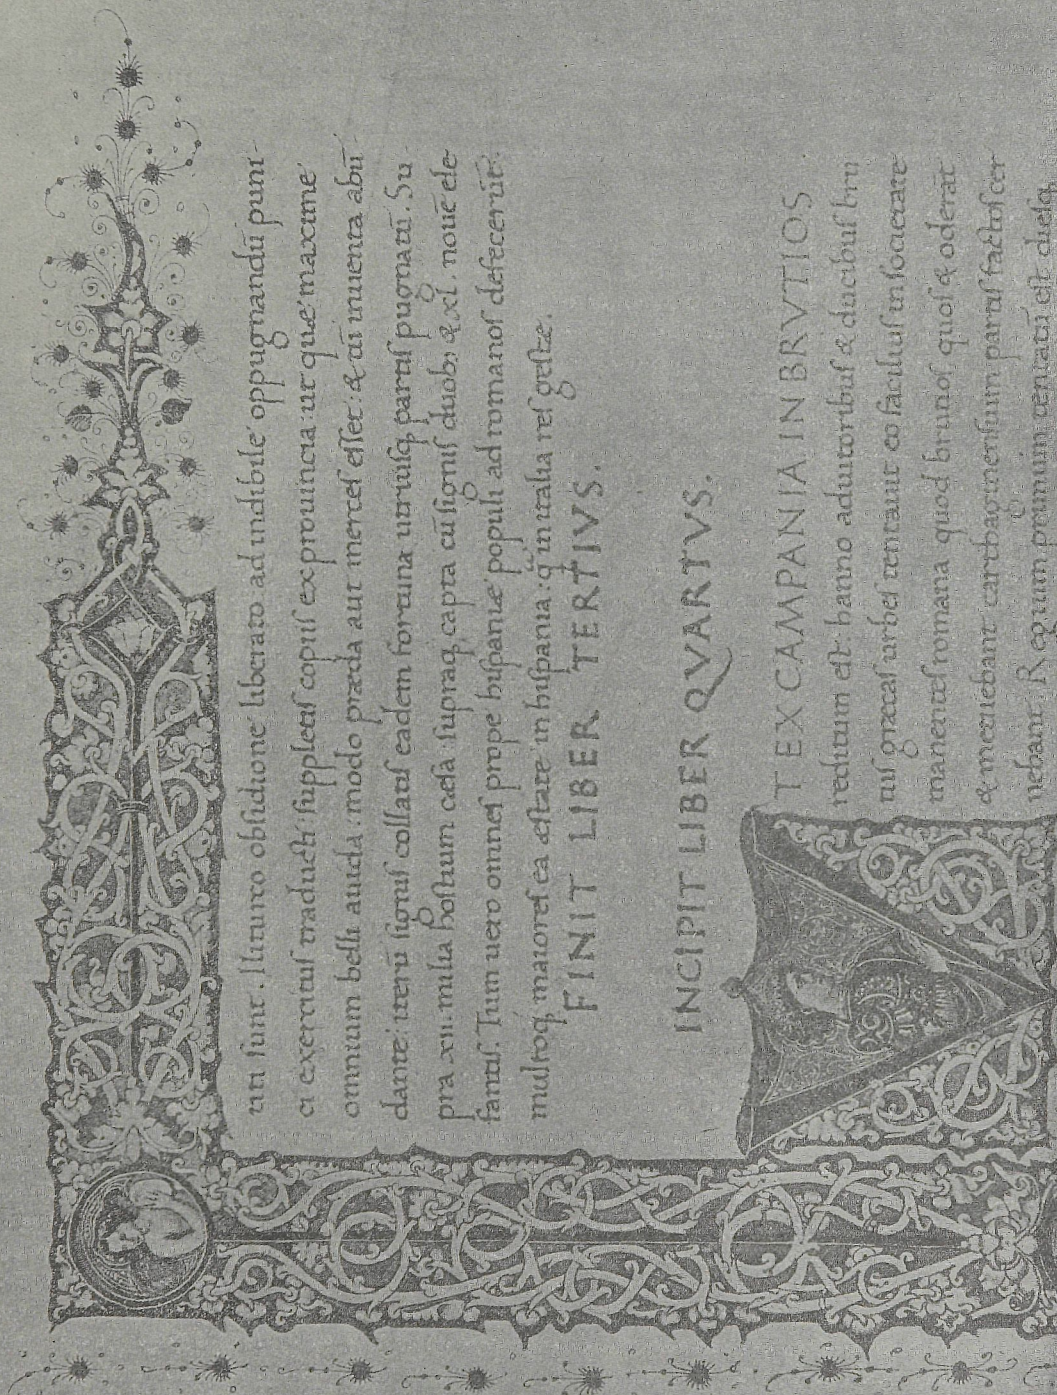 uti sunt. Iliturco obsidione liberato. ad indibile oppugnandū puni-
ci exercitus traducti: suppletis copiis ex prouincia: ut quæ maxime
omnium belli auida. modo præda aut merces esset: & tū iuuenta abū-
dante. iterū signis collatis eadem fortuna utriusq; partis pugnatū. Su
pra .xii. milia hostium cęsa: supraq; capta cū signis duob; & xl. nouē ele-
fantis. Tum uero omnes prope hispaniæ populi ad romanos defecerūt.
multoq; maiores ea æstate in hispania. q̃ in italia res gestæ.
FINIT LIBER TERTIVS.
INCIPIT LIBER QVARTVS.
T EX CAMPANIA IN BRVTIOS
reditum est: hanno adiutoribus & ducibus bru
tiis græcas urbes tentauit eo facilius in societate
manentes romana quod brutios, quos & oderāt
& metuebant carthaginensium partis factos cer
nebant. Regium primum tentatū est. diesq;